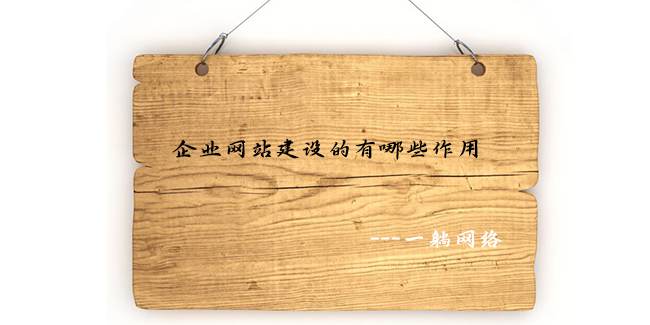 企业网站建设的有哪些作用
---一躺网络